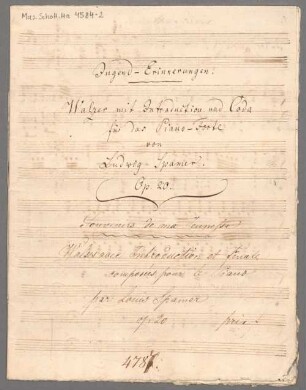 Mus. Schott. Ha 4584-2
Jugend-Erinnerungen.
Walzer mit Introduction und Coda
für das Piano-Forte
von
Ludwig Spamer.
Op. 20.
Souvenirs de ma Jeunesse
Walses avec Introduction et Finale
composées pour le Piano
par Louis Spamer
op 20 prix